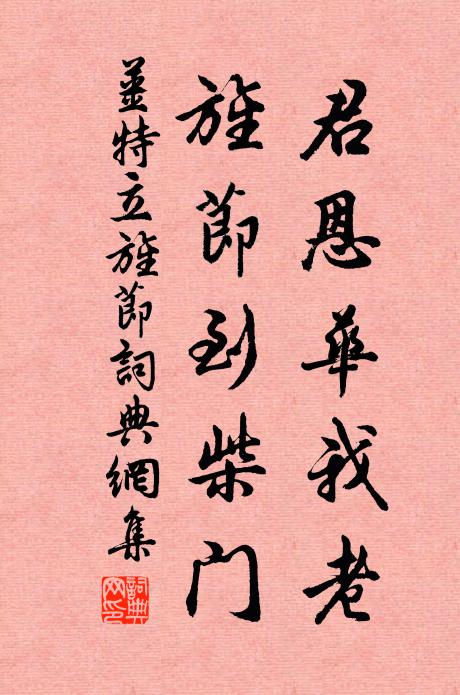 君恩華我老
旌節到柴門
姜特立旌節詞典網集
詞典網印